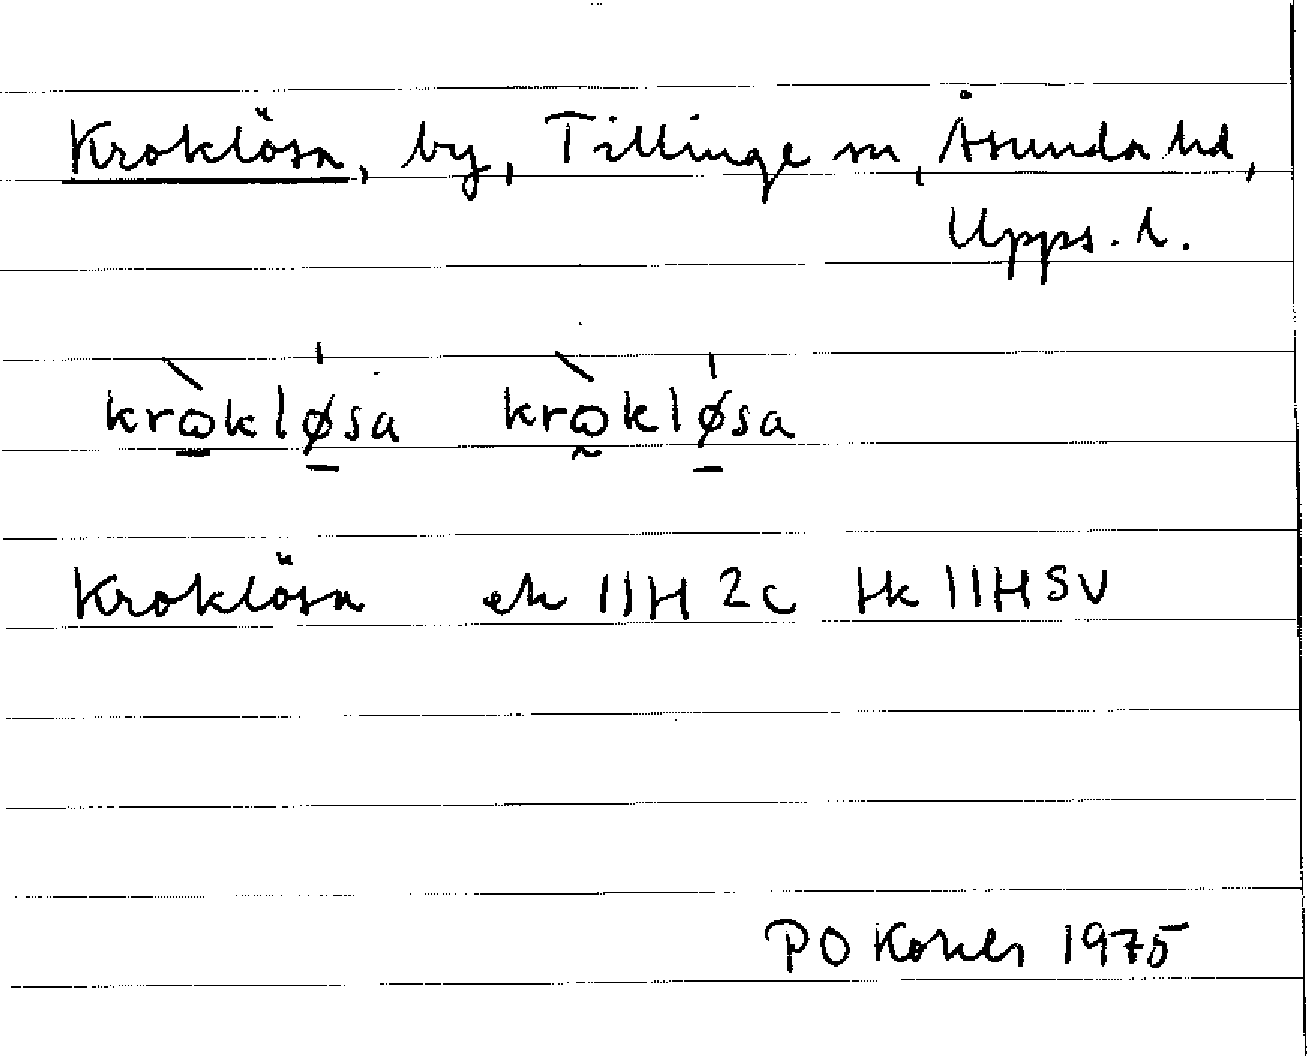 Kroklösa, by, Tillinge sn, Åsunda hd,
Upps. l.
kròkløsa kròkløsa
Kroklösa ek 11H 2c Hk 11H SV
P O 1975